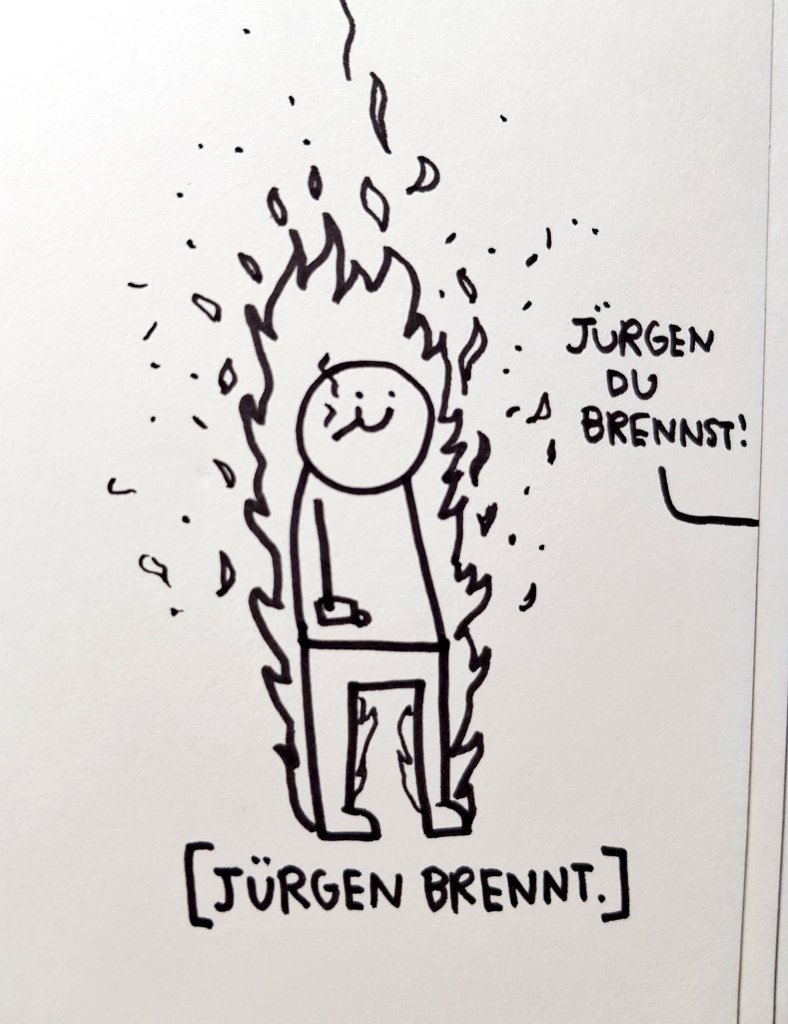 JÜRGEN
DU
BRENNST!
[JÜRGEN BRENNT.]